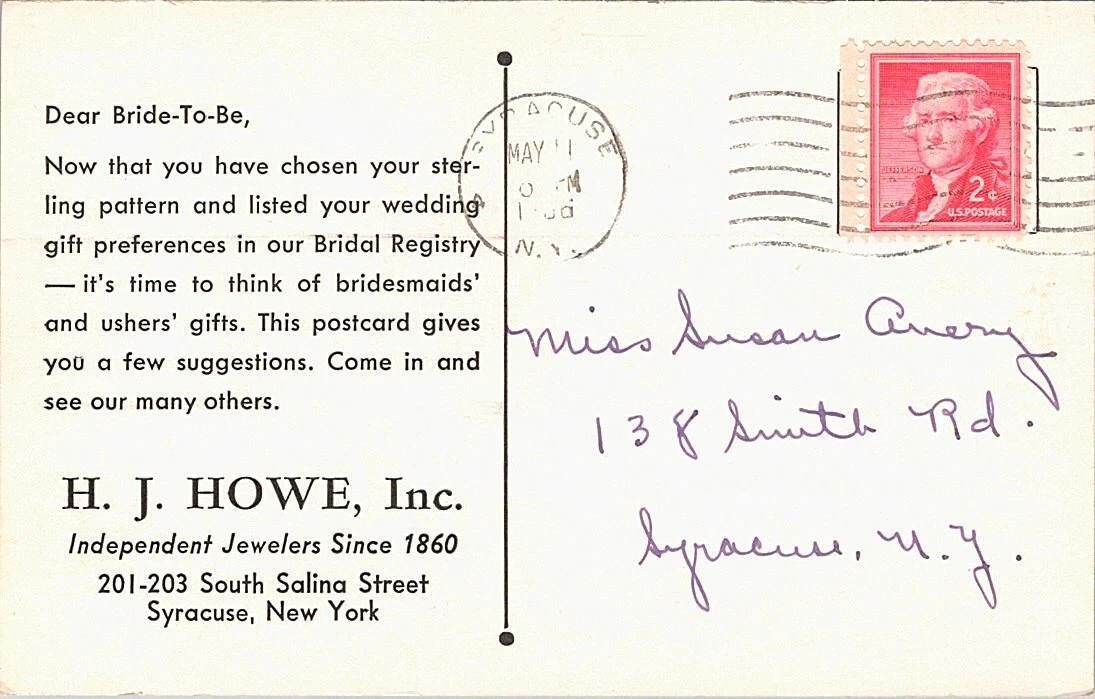 Dear Bride-To-Be,
Now that you have chosen your ster-
ling pattern and listed your wedding
gift preferences in our Bridal Registry
— it's time to think of bridesmaids'
and ushers' gifts. This postcard gives
you a few suggestions. Come in and
see our many others.
H. J. HOWE, Inc.
Independent Jewelers Since 1860
201-203 South Salina Street
Syracuse, New York
SYRACUSE
MAY 11
N.Y.
JEFFERSON
2¢
U.S. POSTAGE
Miss Susan Avery
138 Smith Rd.
Syracuse, N.Y.